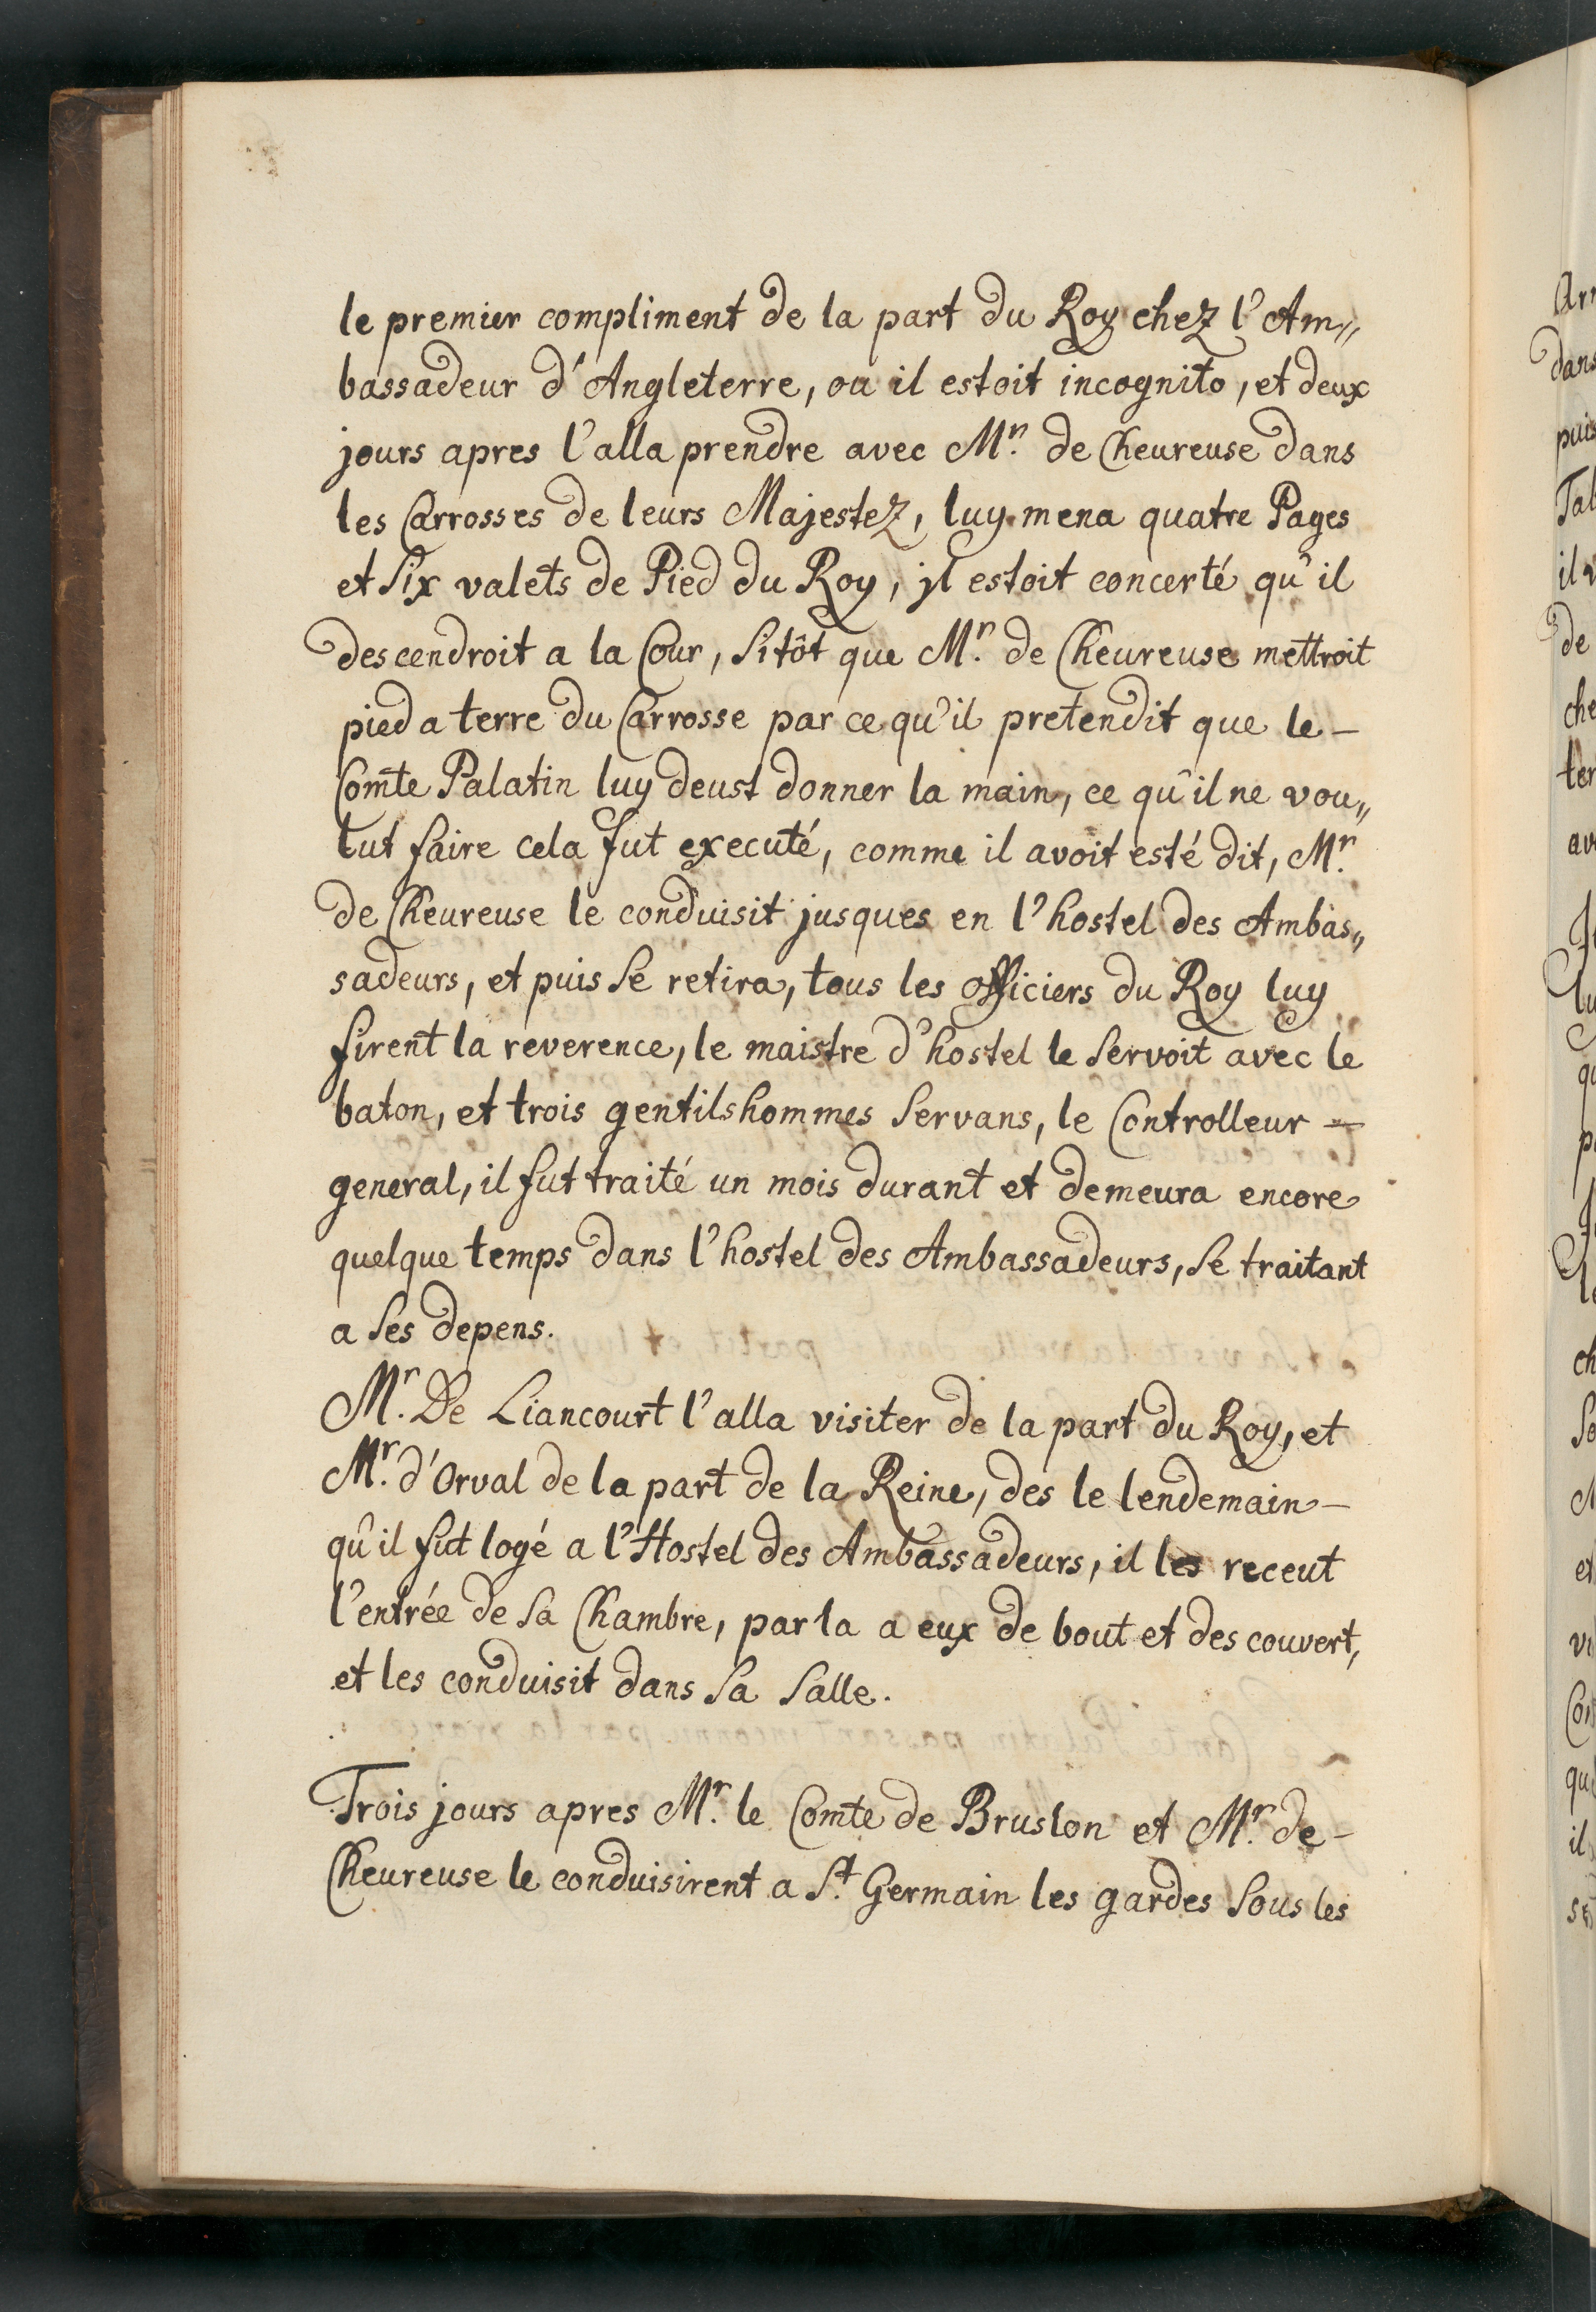 le premier compliment de la part du Roy chez l'Am„
bassadeur d'Angleterre, ou il estoit incognito, et deux
jours apres l'alla prendre avec Mr. de Cheureuse dans
les Carrosses de leurs Majestez, luy mena quatre Pages
et six valets de Pied du Roy, jl estoit concerté qu'il
descendroit a la Cour, sitôt que Mr. de Cheureuse mettroit
pied a terre du Carrosse par ce qu'il pretendit que le-
Comte Palatin luy deust donner la main, ce qu'il ne vou„
lut faire cela fut executé, comme il avoit esté dit, Mr.
de Cheureuse le conduisit jusques en l'hostel des Ambas„
sadeurs, et puis se retira, tous les officiers du Roy luy
firent la reverence, le maistre d'hostel le servoit avec le
baton, et trois gentilshommes servans, le Controlleur -
general, il fut traité un mois durant et demeura encore
quelque temps dans l'hostel des Ambassadeurs, se traitant
a ses depens.
Mr. De Liancourt l'alla visiter de la part du Roy, et
Mr. d'Orval de la part de la Reine, des le lendemain-
qu'il fut logé a l'Hostel des Ambassadeurs, il les receut
l'entrée de sa Chambre, parla a eux de bout et des couvert,
et les conduisit dans sa salle.
Trois jours apres Mr. le Comte de Bruslon et Mr. de-
Cheureuse le conduisirent a St. Germain les gardes sous les